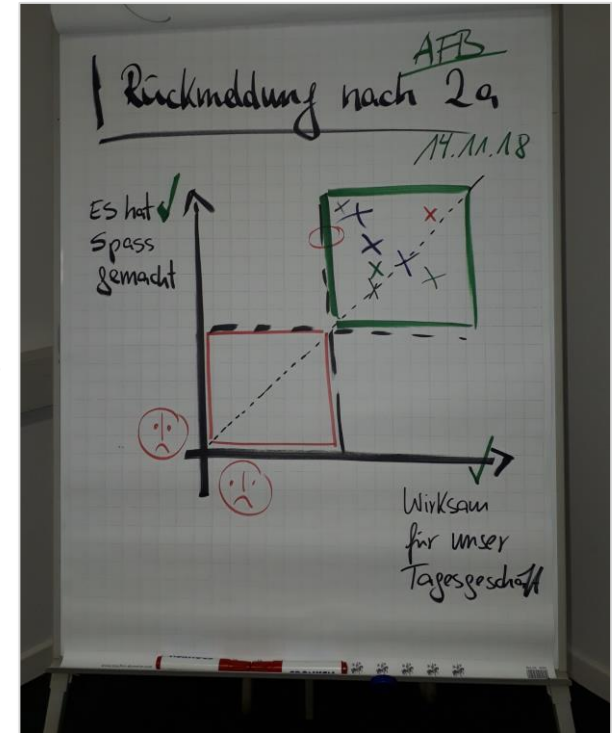 AFB
Rückmeldung nach 2a
14.11.18
Es hat
Spass
gemacht
Wirksam
für unser
Tagesgeschäft